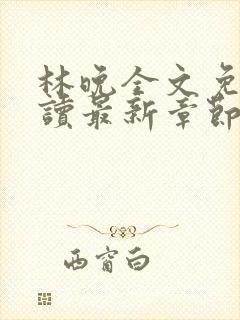 林晚全文免
讀最新章節
西窗白